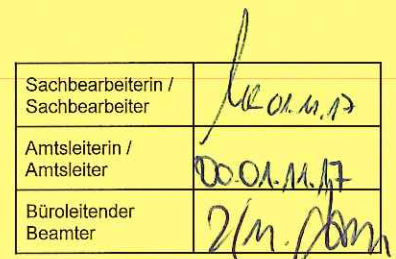 Sachbearbeiterin /
Sachbearbeiter
01.11.17
Amtsleiterin /
Amtsleiter
01.11.17
Büroleitender
Beamter